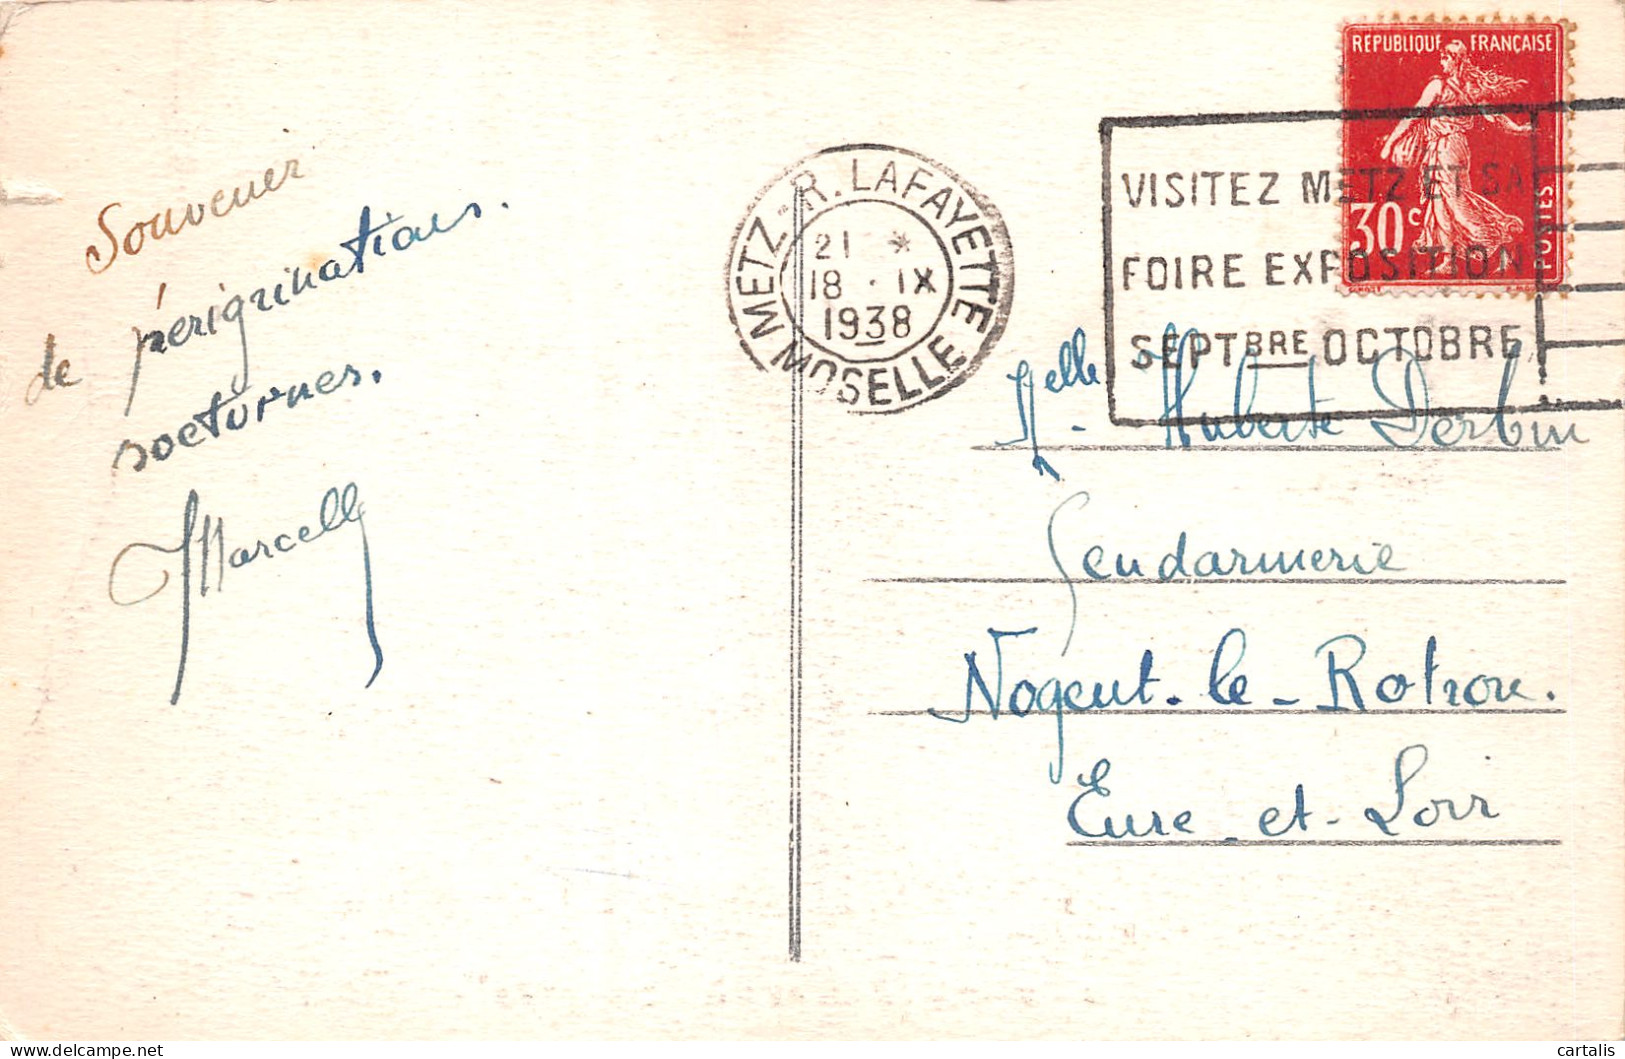 Souvenir
de pérégrinations
nocturnes.
Marcelle
REPUBLIQUE FRANÇAISE
30c
POSTES
METZ - R. LAFAYETTE
21 *
18 · IX
1938
MOSELLE
VISITEZ METZ ET SA
FOIRE EXPOSITION
SEPTBRE OCTOBRE
Melle Huberte
Gendarmerie
Nogent-le-Rotrou.
Eure-et-Loir
cartalis
Delcampe.net